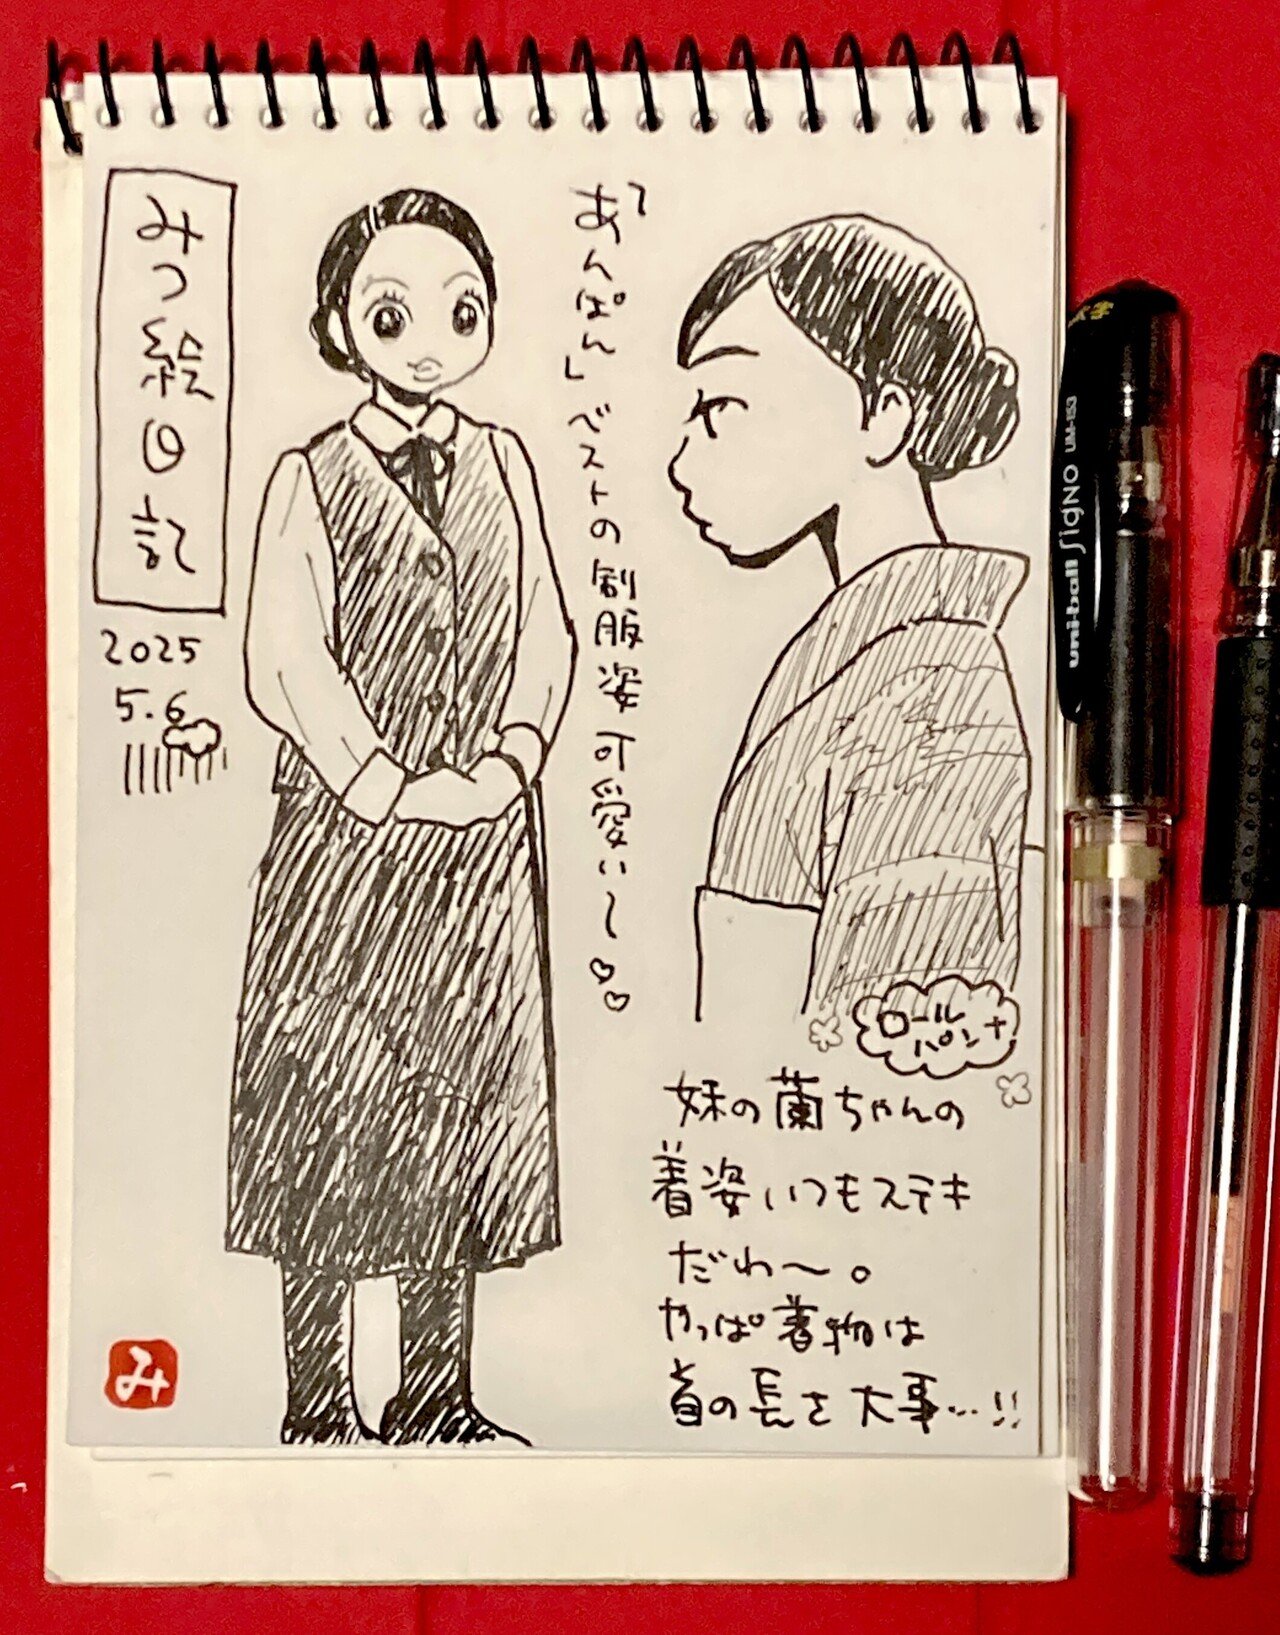 みつ絵日記
2025
5.6
「あんぱん」ベストの制服姿可愛い〜♡♡
ロール
パンナ
妹の蘭ちゃんの
着姿いつもステキ
だわ〜。
やっぱ着物は
首の長さ大事…!!
み
uni-ball SigNO UM-153
太字